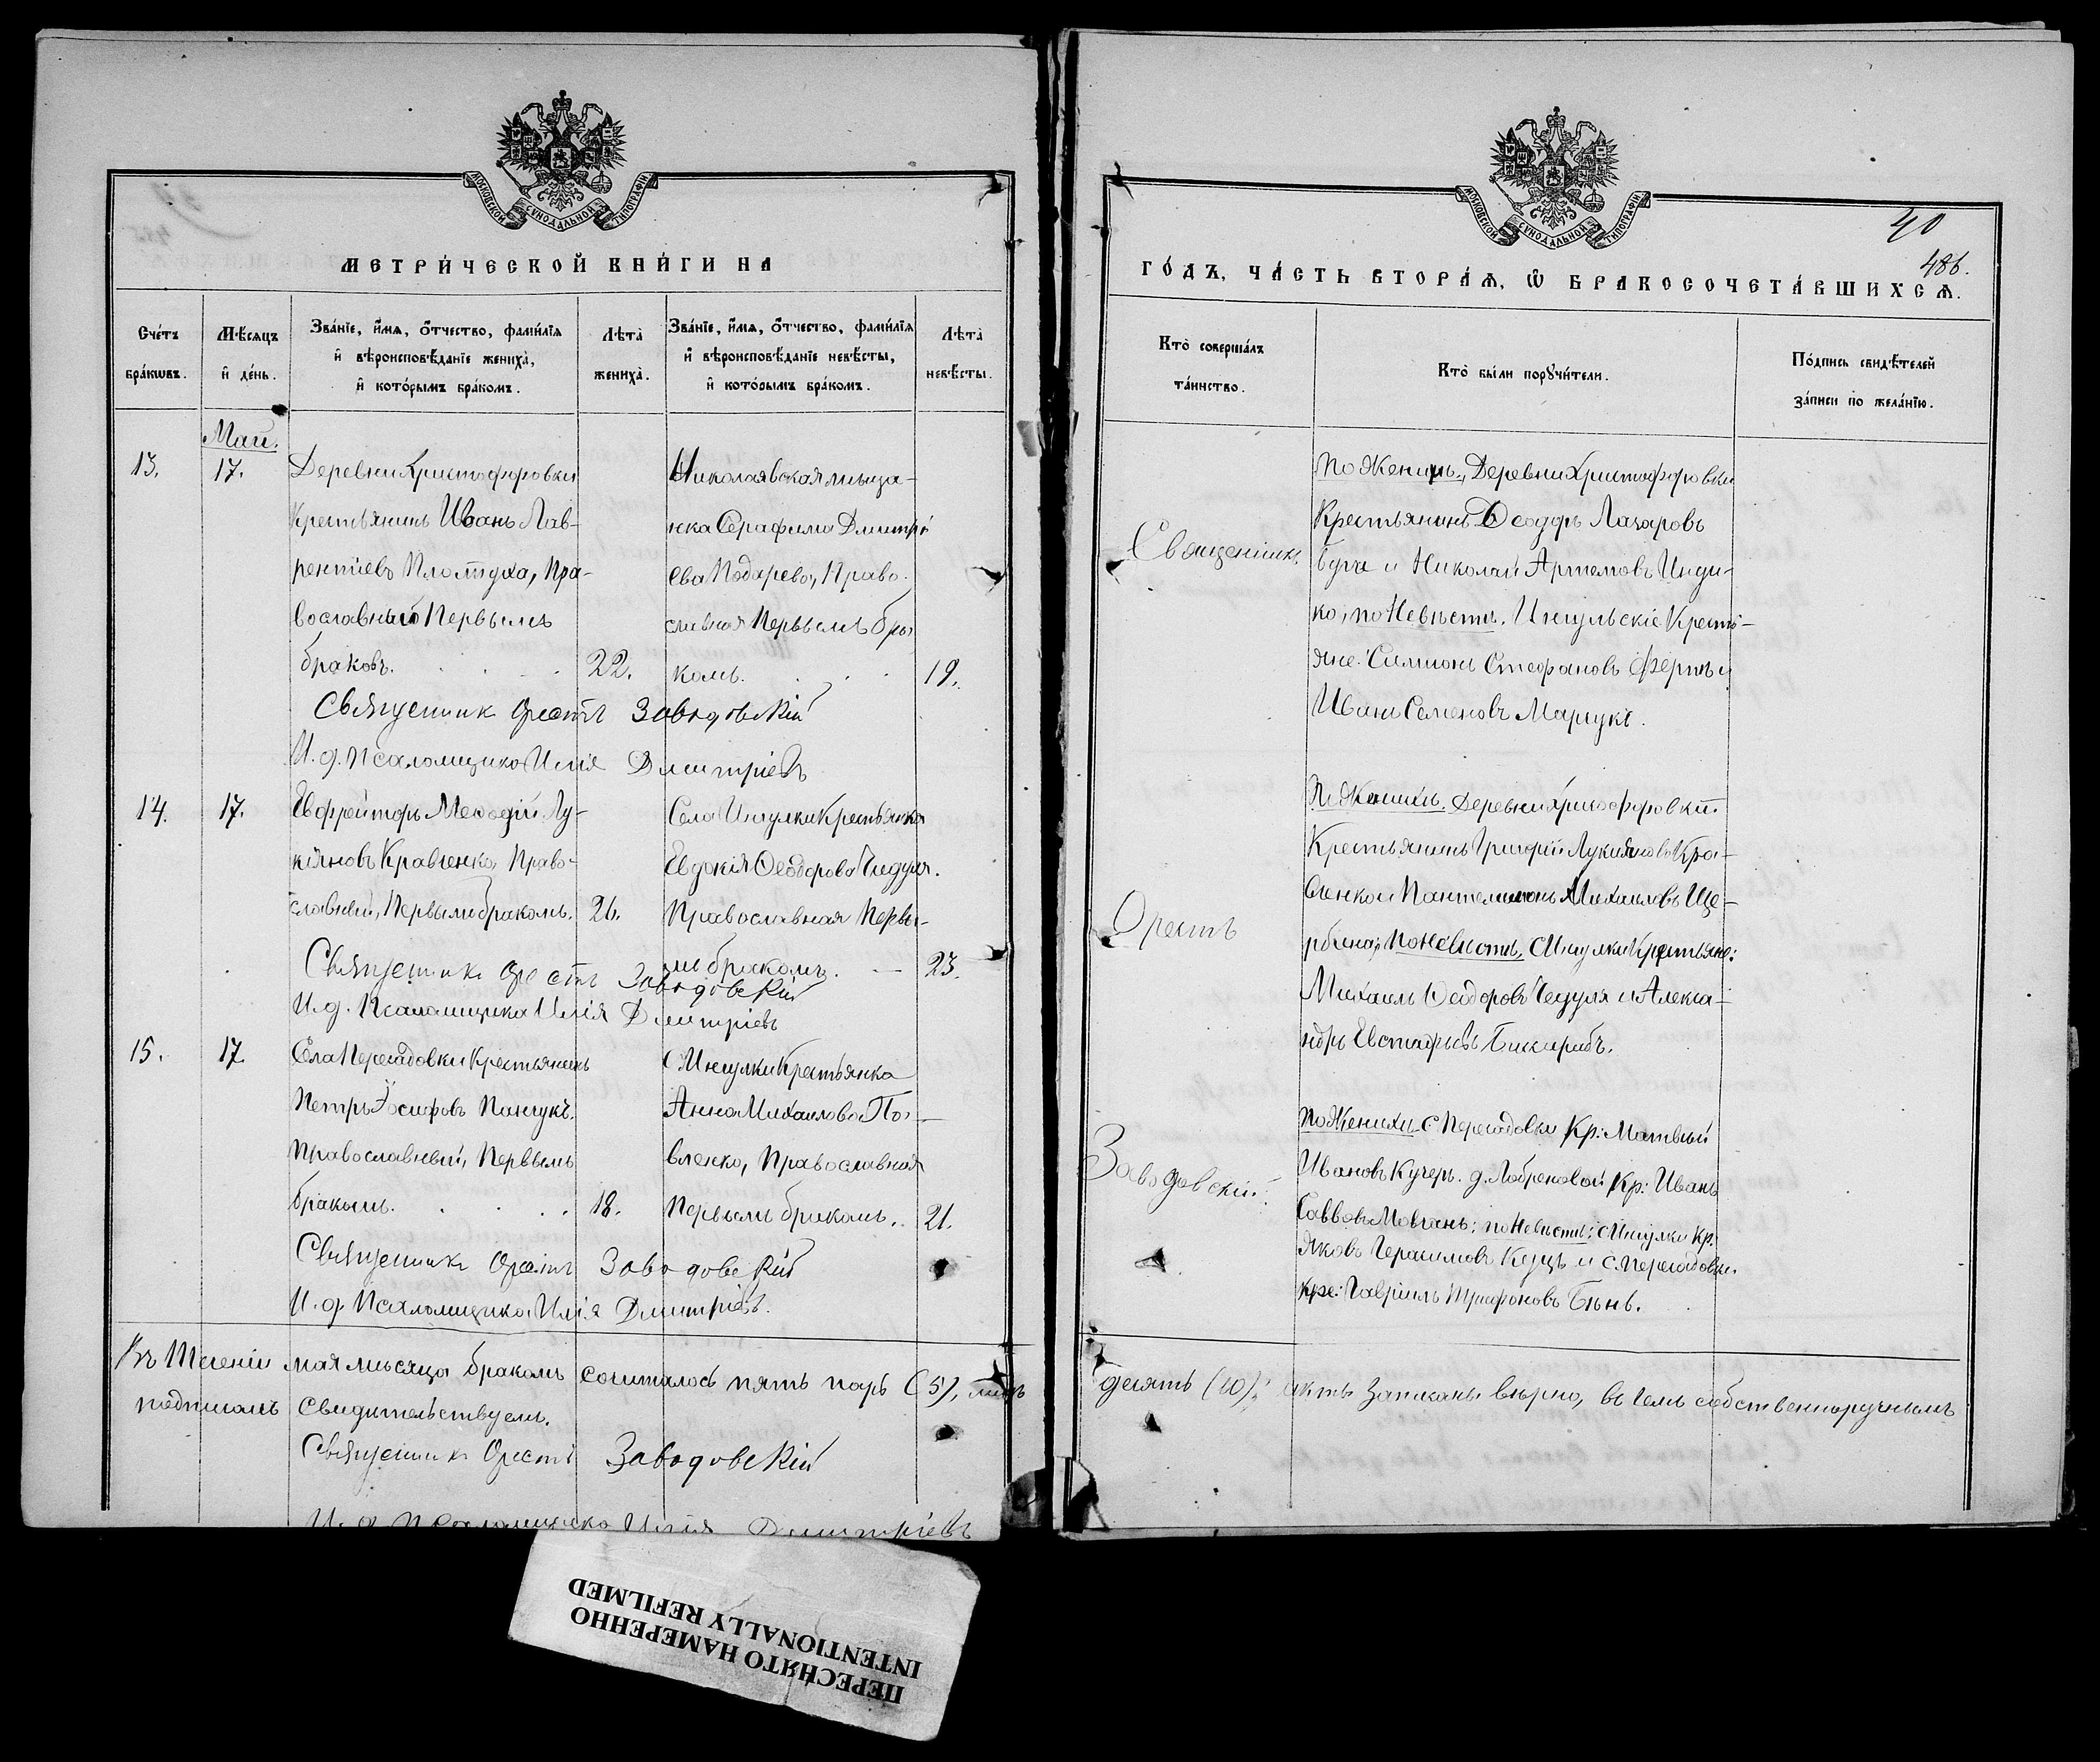 МОСКОВСКОЙ СѴНОДАЛЬНОЙ ТИПОГРАФІИ
МЕТРИ́ЧЕСКОЙ КНИ́ГИ НА
Сче́тъ бра́кѡвъ.
Мѣ́сяцъ и҆ де́нь.
Зва́нїе, и҆́мя, ѻ҆́тчество, фами́лїя
и҆ вѣроисповѣ́данїе жениха̀,
и҆ кото́рымъ бра́комъ.
Лѣта̀ жениха̀.
Зва́нїе, и҆́мя, ѻ҆́тчество, фами́лїя
и҆ вѣроисповѣ́данїе невѣ́сты,
и҆ кото́рымъ бра́комъ.
Лѣта̀ невѣ́сты.
Май.
13.
17.
Деревни Христофоровки
Крестьянинъ Иванъ Лав-
рентіевъ Плотуха, Пра-
вославный Первымъ
браковъ.
22.
Николаевская мѣща-
нка Серафима Дмитрі
ева Подарева, Право-
славная Первымъ бра
комъ.
19.
Священникъ Орестъ Заводовскій
И. д. Псаломщика Илія Дмитріевъ
14.
17.
Ефрейторъ Меѳодій Лу-
кіяновъ Кравченко, Право-
славный, Первымъ бракомъ.
26.
Села Ингулки Крестьянка
Евдокія Ѳеодорова Чедуля.
Православная Первы-
мъ бракомъ.
23.
Священникъ Орестъ Заводовскій
И. д. Псаломщика Илія Дмитріевъ
15.
17.
Села Пересадовки Крестьянинъ
Петръ Іосифовъ Панчукъ.
Православный, Первымъ
бракомъ.
18.
С Ингулки Крестьянка
Анна Михаилова Па-
вленко, Православная
Первымъ бракомъ.
21.
Священникъ Орестъ Заводовскій
И. д. Псаломщика Илія Дмитріевъ.
Въ теченіи мая мѣсяца бракомъ сочиталось пять паръ (5), лицъ
подписомъ свидѣтельствуемъ.
Священникъ Орестъ Заводовскій
И. д. Псаломщика Илія Дмитріевъ
МОСКОВСКОЙ СѴНОДАЛЬНОЙ ТИПОГРАФІИ
40
486.
ГО́ДЪ, ЧА́СТЬ ВТОРА́Ѧ, Ѡ҆ БРАКОСОЧЕТА́ВШИХСѦ.
Кто̀ соверша́лъ та́инство.
Кто̀ бы́ли порꙋчи́тели.
По́дпись свидѣ́телей
за́писи по жела́нїю.
Священникъ
Орестъ
Заводовскій.
По Женихѣ, Деревни Христофоровки
Крестьянинъ Ѳеодоръ Лазаровъ
и Николай Артемовъ Инди-
ко, по Невѣстѣ. Ингульскіе Кресть-
яне: Симіонъ Стефановъ Ферты
Иванъ Семеновъ Марчукъ.
По Женихѣ. Деревни Христофоровки
Крестьянинъ Григорій Лукияновъ Кра-
вченко и Пантелимонъ Михаиловъ Ще-
рбина; По Невѣстѣ, С Ингулки Крестьяне:
Михаилъ Ѳеодоровъ Чедуля и Алекса-
ндръ Евстафіевъ
По Женихѣ С Пересадовки Кр: Матвѣй
Ивановъ Кучеръ. д. Лобреновой Кр: Иванъ
Саввовъ Мовчанъ; по Невѣстѣ: С Ингулки Кр.
Яковъ Герасимовъ и С. Пересадовки
Кре: Гавріилъ Трифоновъ Бѣнь.
десять (10); актъ записанъ вѣрно, въ чемъ собственноручнымъ
ПЕРЕСНЯТО НАМЕРЕННО
INTENTIONALLY REFILMED